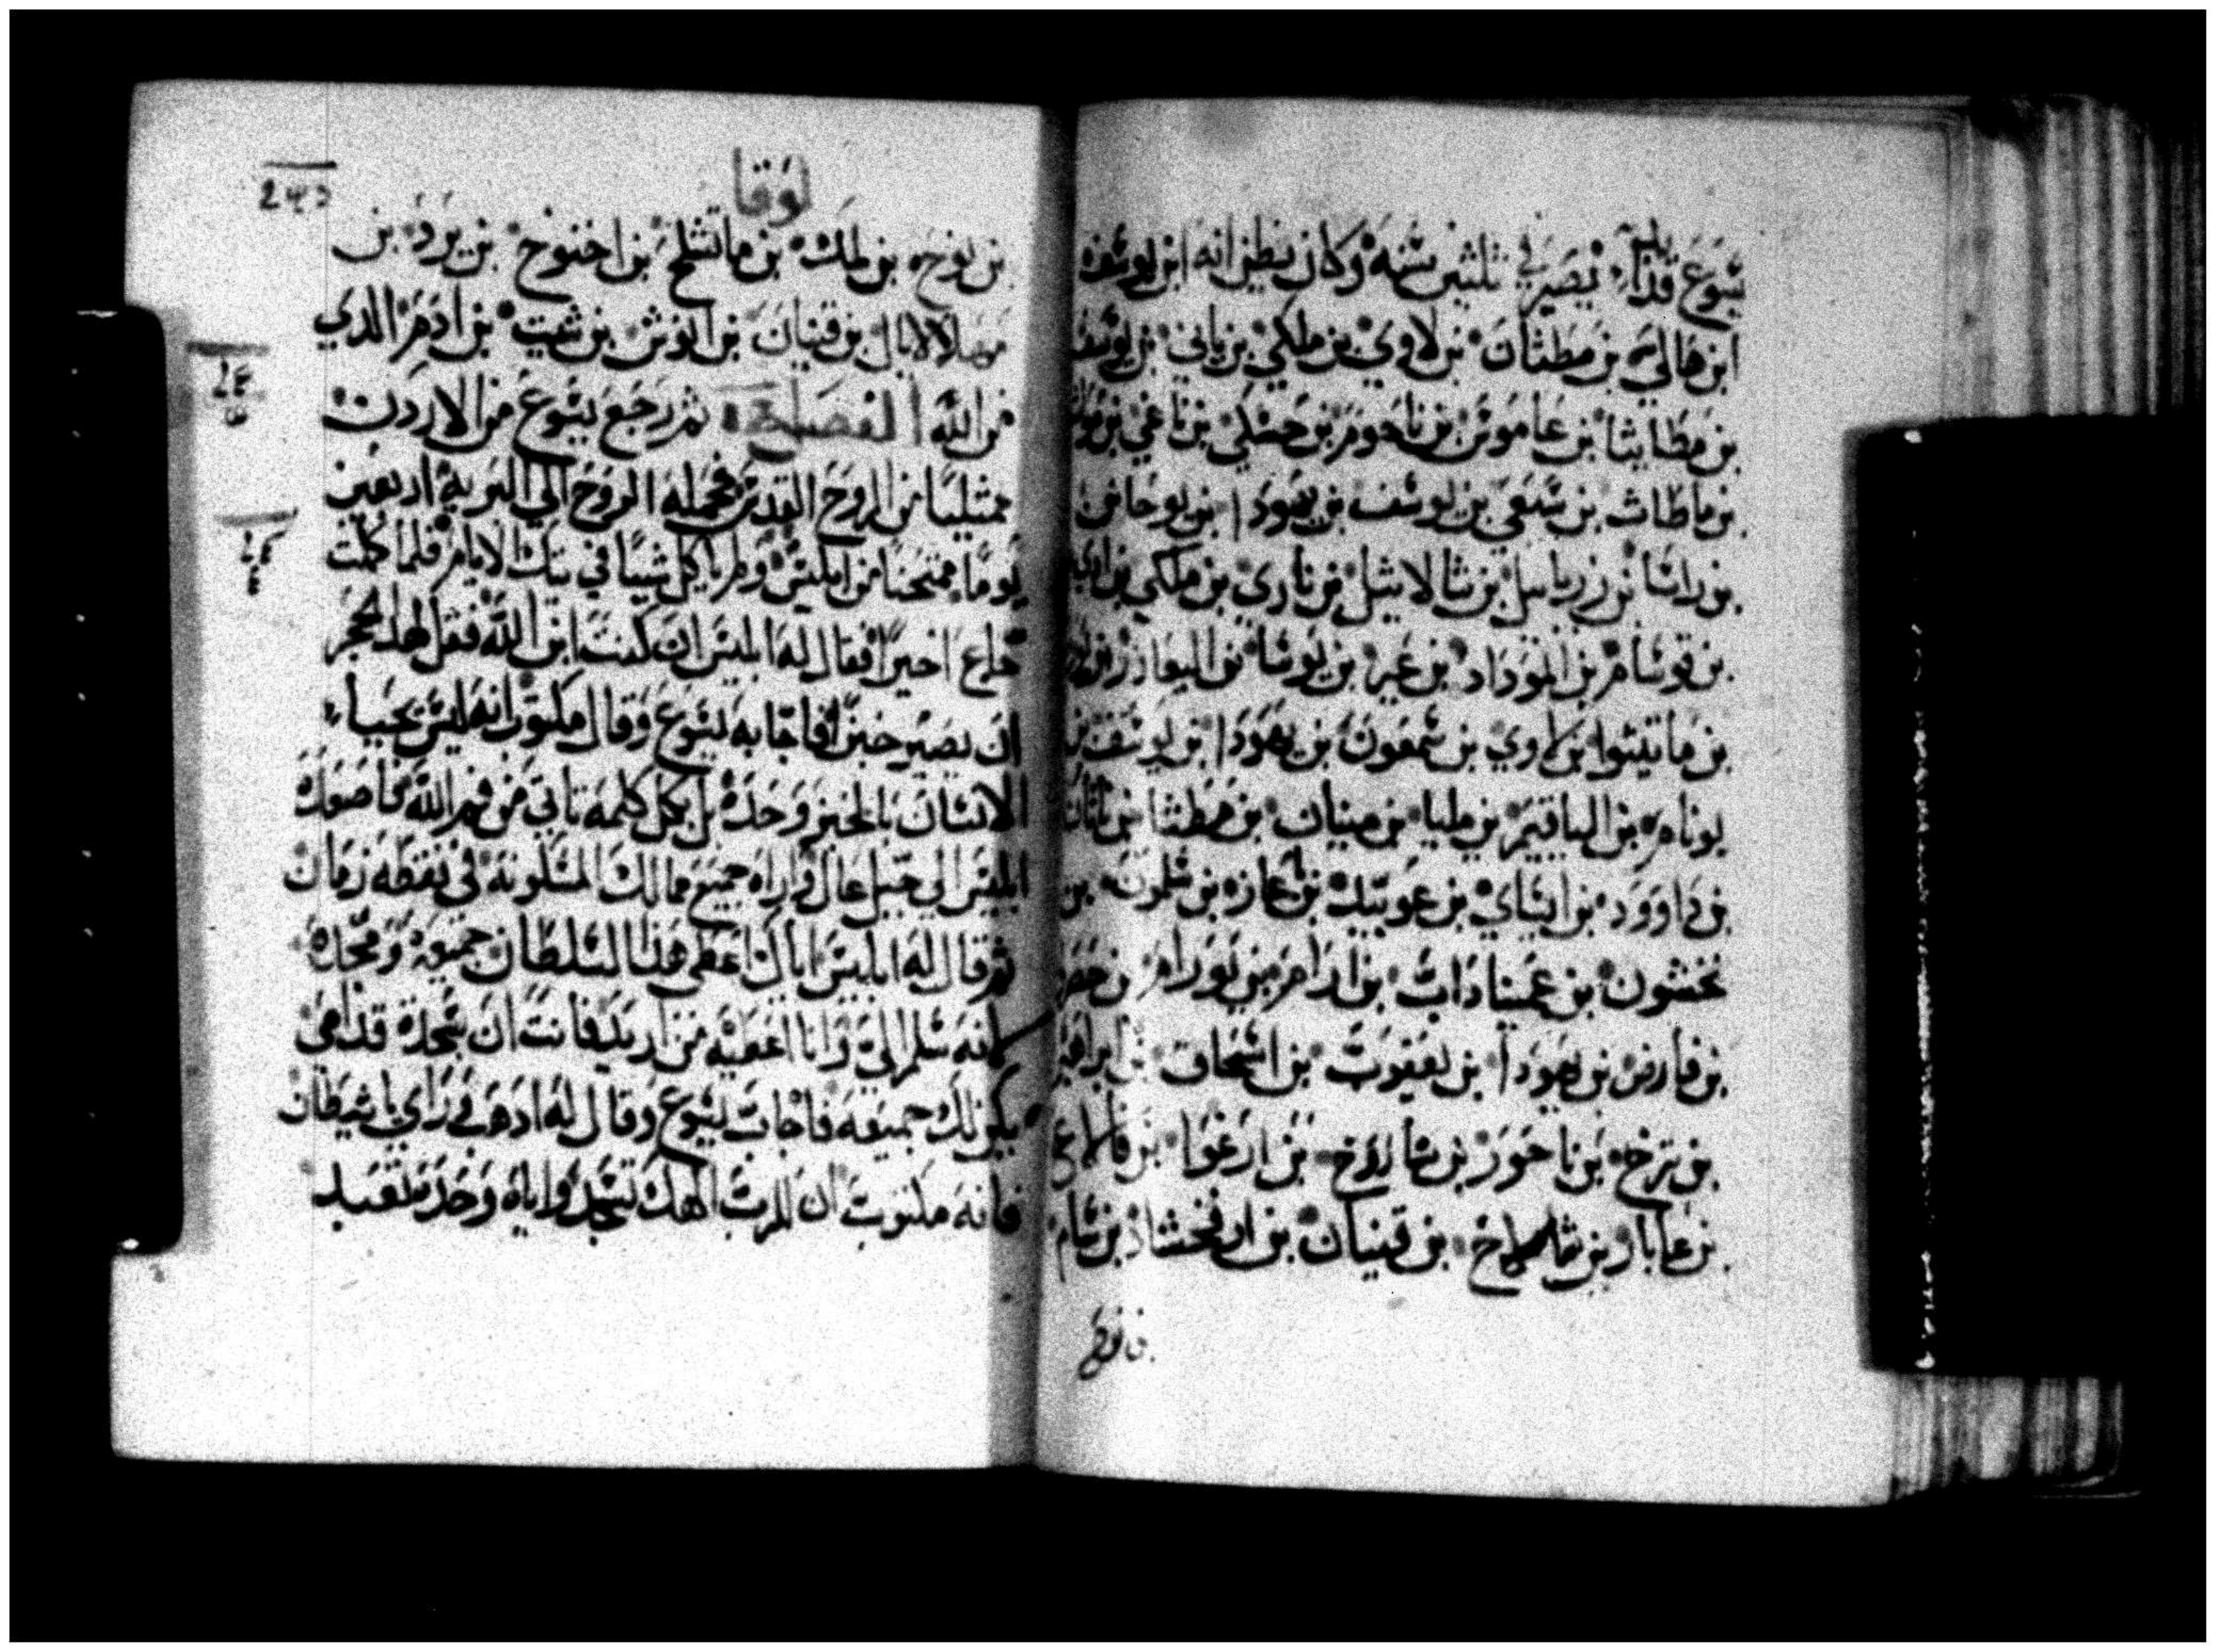 يسوع قد ابتدا يصير في ثلثين سنه وكان يظن انه ابن يوسف
ابن هالي بن مطثان بن لاوي بن ملكي بن ياني بن يوسف
بن مطاتيا بن عاموص بن ناحوم بن حسلي بن ناغي بن
بن ماطاث بن شمعي بن يوسف بن يهودا بن يوحانن
بن راسا بن زربابيل بن ثالاثيل بن ناري بن ملكي بن ادي
بن قوسام بن الموداد بن عير بن يوسا بن اليعازر بن
بن ماتيثوا بن لاوي بن شمعون بن يهودا بن يوسف بن
يونام بن الياقيم بن مليا بن مينان بن مطثا بن ناثان
بن داوود بن ايساي بن عوبيد بن باعاز بن سلمون بن
نحشون بن عميناداب بن ارام بن يورام بن حصر
بن فارص بن يهودا بن يعقوب بن اسحاق بن ابراهيم
بن ترخ بن ناحور بن ساروخ بن ارغوا بن فالاغ
بن عابار بن شالاخ بن قينان بن ارفخشاد بن سام
بن نوح
لوقا
بن نوح بن لمك بن ماتشلح بن اخنوخ بن يرد بن
مهلالايال بن قينان بن انوش بن شيت بن ادم الدي
من الله الفصل ثم رجع يسوع من الاردن
ممتليا من الروح القدس فحمله الروح الي البريه اربعين
يوما ممتحنا من ابليس ولم ياكل شيا في تيك الايام فلما كملت
جاع اخيرا فقال له ابليس ان كنت ابن الله فقل لهدا الحجر
ان يصير خبزا فاجابه يسوع وقال مكتوب انه ليس يحيا
الانسان بالخبز وحده بل بكل كلمه تاتي من فم الله فاصعده
ابليس الي جبل عال واراه جميع ممالك المسكونه في نقطه زمان
ثم قال له ابليس اياك اعطي هذا السلطان جميعه ومجده
لانه سلم الي وانا اعطيه من اريد فانت ان سجدة قدامي
يكن لك جميعه فاجاب يسوع وقال له ادهب وراي ياشيطان
فانه مكتوب ان للرب الهك تسجد واياه وحده تعبد